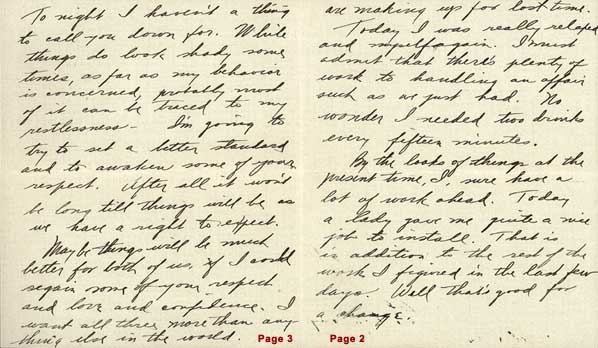 To night I haven't a thing
to call you down for. While
things do look shady some
times, as far as my behavior
is concerned, probably most
of it can be traced to my
restlessness - I'm going to
try to set a better standard
and to awaken some of your
respect. After all it won't
be long till things will be as
we have a right to expect.
Maybe things will be much
better for both of us, if I could
regain some of your respect
and love and confidence. I
want all three more than any
thing else in the world.
Page 3
are making up for lost time.
Today I was really relaxed
and myself again. I must
admit that there's plenty of
work to handling an affair
such as we just had. No
wonder I needed two drinks
every fifteen minutes.
By the looks of things at the
present time, I sure have a
lot of work ahead. Today
a lady gave me quite a nice
job to install. That is
in addition to the rest of the
work I figured in the last few
days. Well that's good for
a change.
Page 2